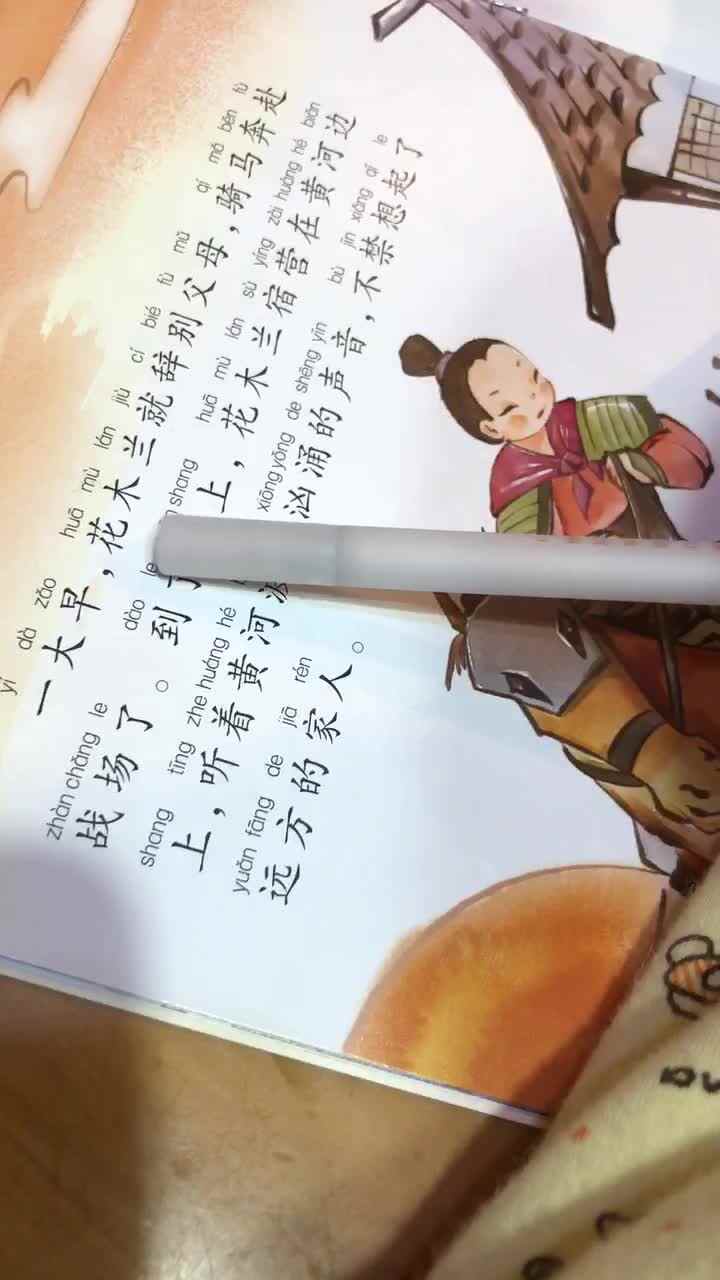 yí dà zǎo huā mù lán jiù cí bié fù mǔ qí mǎ bēn fù
一大早，花木兰就辞别父母，骑马奔赴
zhàn chǎng le dào le shang huā mù lán sù yíng zài huáng hé biān
战场了。到了上，花木兰宿营在黄河边
shang tīng zhe huáng hé xiōng yǒng de shēng yīn bù jīn xiǎng qǐ le
上，听着黄河汹涌的声音，不禁想起了
yuǎn fāng de jiā rén
远方的家人。